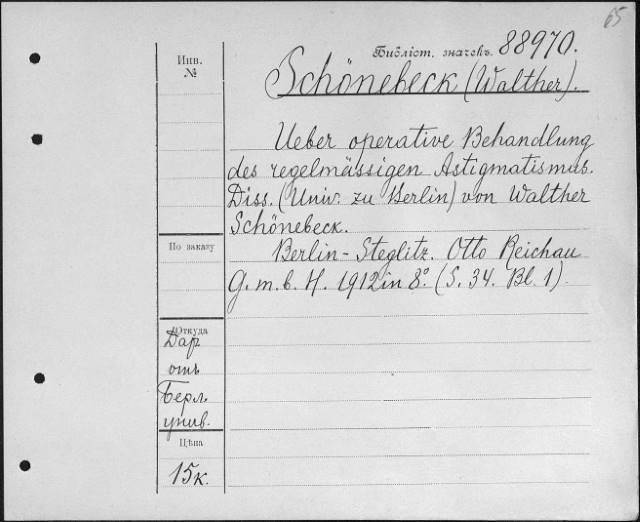 65
Библіот. значекъ. 88970.
Инв.
№
Schönebeck (Walther).
Ueber operative Behandlung
des regelmässigen Astigmatismus.
Diss. (Univ. zu Berlin) von Walther
Schönebeck.
По заказу
Berlin-Steglitz. Otto Reichau
G. m. b. H. 1912 in 8º. (S. 34. Bl. 1).
Откуда
Дар
отъ
Берл.
унив.
Цѣна
15к.